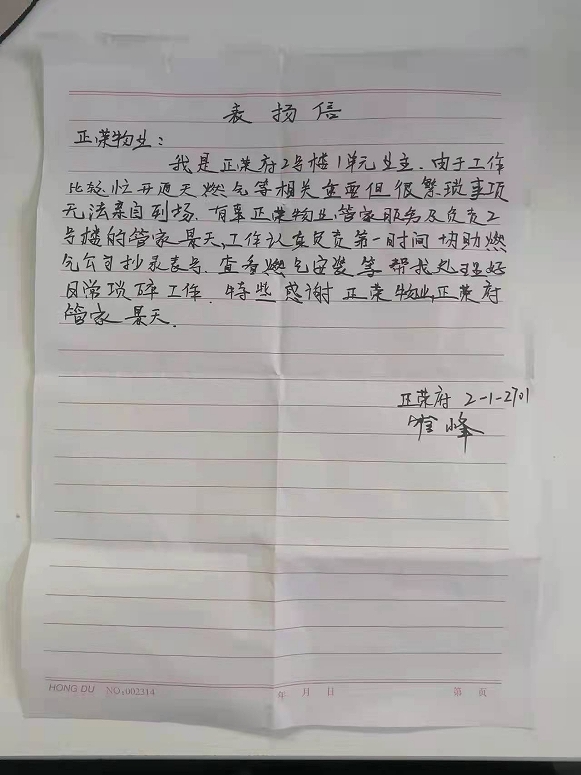 表扬信
正荣物业：
我是正荣府2号楼1单元业主.由于工作
比较忙开通天燃气等相关重要但很繁琐事项
无法亲自到场.有幸正荣物业,管家服务及负责2
号楼的管家景天,工作认真负责第一时间协助燃
气公司抄录表号.查看燃气安装等帮我处理好
日常琐碎工作.特此感谢正荣物业,正荣府
管家景天.
正荣府 2-1-2701
峰
HONG DU NO:002314 年 月 日 第 页